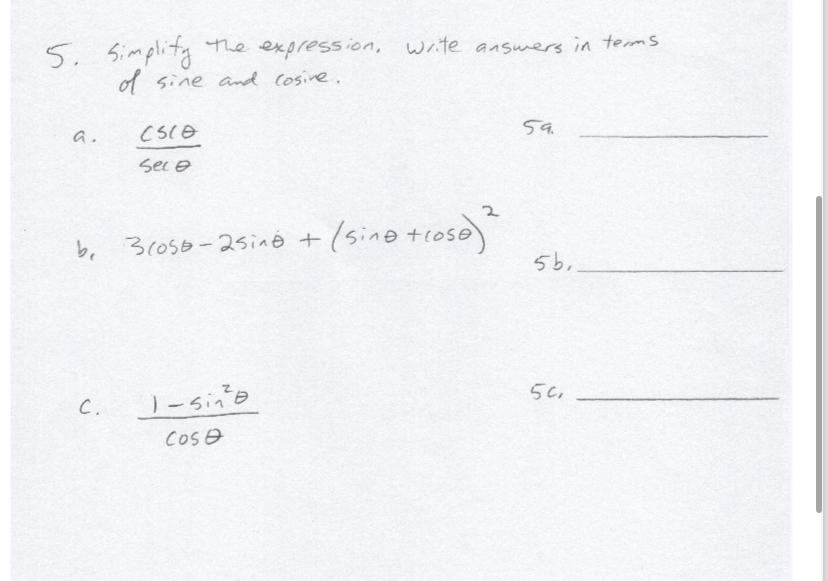 5. Simplify the expression. Write answers in terms
of sine and cosine.
a. cscθ 5a.
secθ
b. 3cosθ - 2sinθ + (sinθ + cosθ)² 5b.
c. 1 - sin²θ 5c.
cosθ